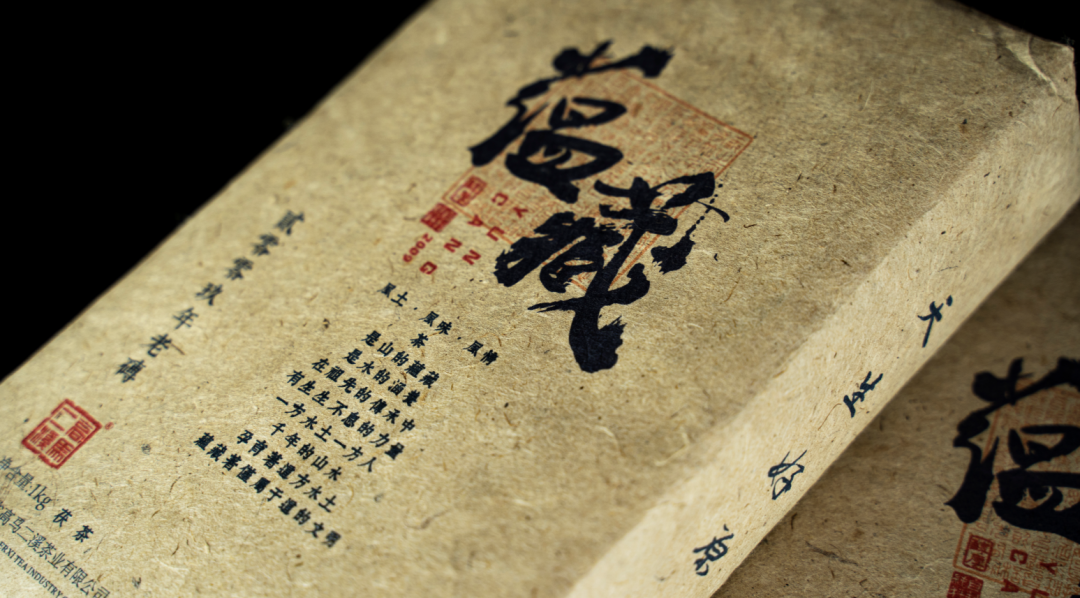 蕴藏
CYUANNCC
2009
风土·风味·风情
茶
是山的蕴藏
是水的涵养
在祖先的傳承中
有生生不息的力量
一方水土一方人
千年的山水
孕育著這方水土
蕴藏著值属于這的文明
貳零零玖年老磚
高馬二溪
®
净含量:1kg 茯茶
高马二溪茶业有限公司
ERXI TEA INDUSTRY
天生好原
蕴